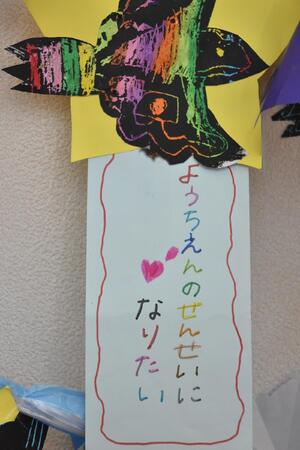 ようちえんのぜんせいに
なりたい